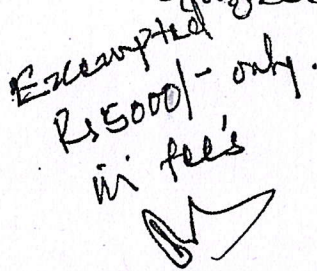 Excempted
Rs 5000/- only.
in fee's